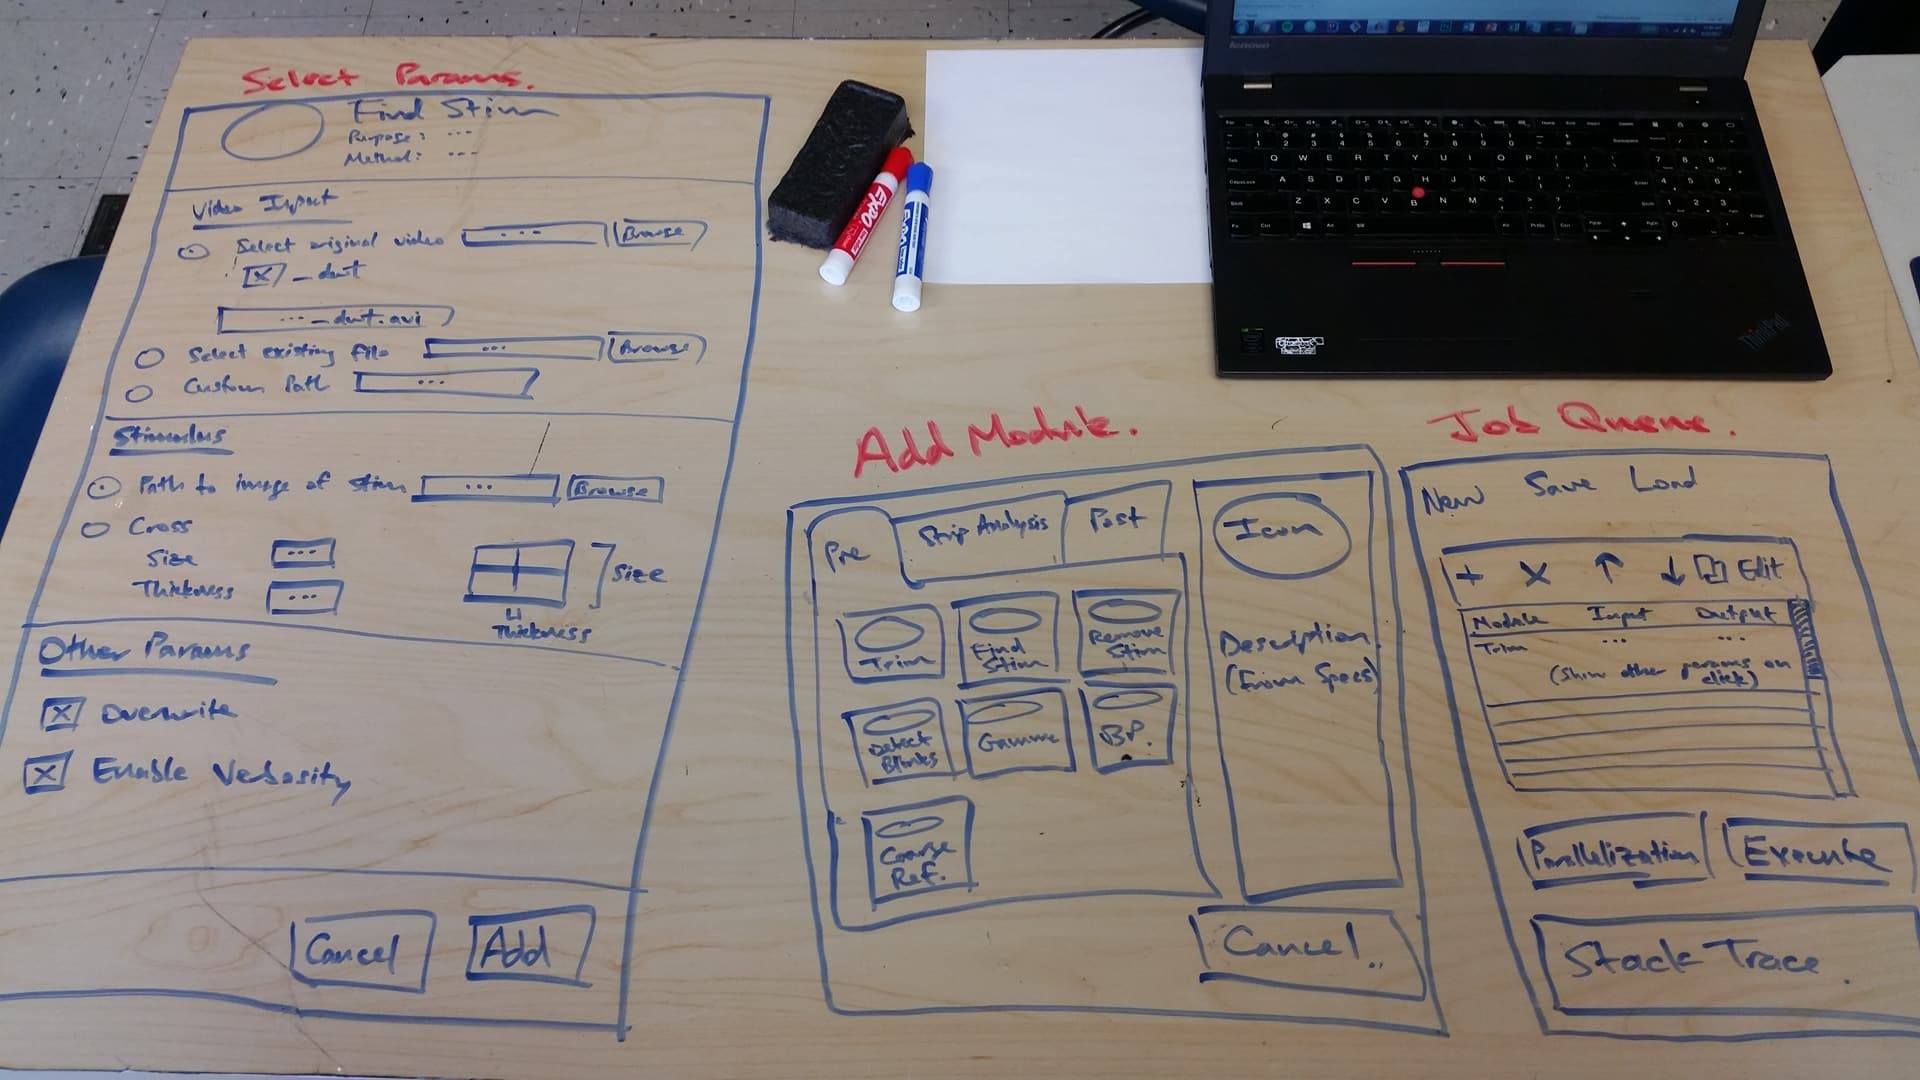 Select Params.
Find Stim
Purpose: ...
Method: ...
Video Input
Select original video ... Browse
_dwt
..._dwt.avi
Select existing file ... Browse
Custom Path ...
Stimulus
Path to image of stim ... Browse
Cross
Size ...
Thickness ...
Size
Thickness
Other Params
Overwrite
Enable Verbosity
Cancel Add
Add Module.
Pre Strip Analysis Post
Trim Find Stim Remove Stim
Detect Blinks Gamma BP.
Coarse Ref.
Icon
Description
(From Specs)
Cancel
Job Queue.
New Save Load
+ × ↑ ↓ Edit
Module Input Output
Trim ... ...
(Show other params on click)
Parallelization Execute
Stack Trace.
EXPO
EXPO
lenovo
ThinkPad